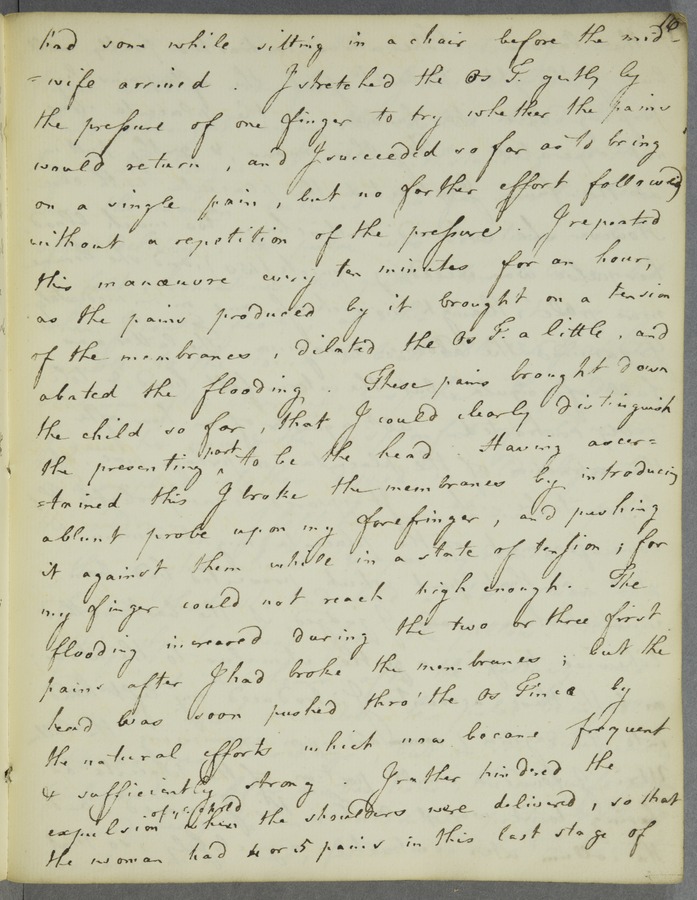 16
had some while sitting in a chair before the mid-
=wife arrived. I stretched the Os T. gently by
the pressure of one finger to try whether the pains
would return, and I succeeded so far as to bring
on a single pain, but no farther effort following
without a repetition of the pressure. I repeated
this manœuvre every ten minutes for an hour,
as the pains produced by it brought on a tension
of the membranes, dilated the Os T. a little, and
abated the flooding. These pains brought down
the child so far, that I could clearly distinguish
the presenting part to be the head. Having ascer=
=tained this I broke the membranes by introducing
a blunt probe upon my forefinger, and pushing
it against them while in a state of tension; for
my finger could not reach high enough. The
flooding increased during the two or three first
pains after I had broke the membranes; but the
head was soon pushed thro' the Os Tincæ by
the natural efforts which now became frequent
& sufficiently strong. I rather hindred the
expulsion of ye child when the shoulders were delivered, so that
the woman had 4 or 5 pains in this last stage of